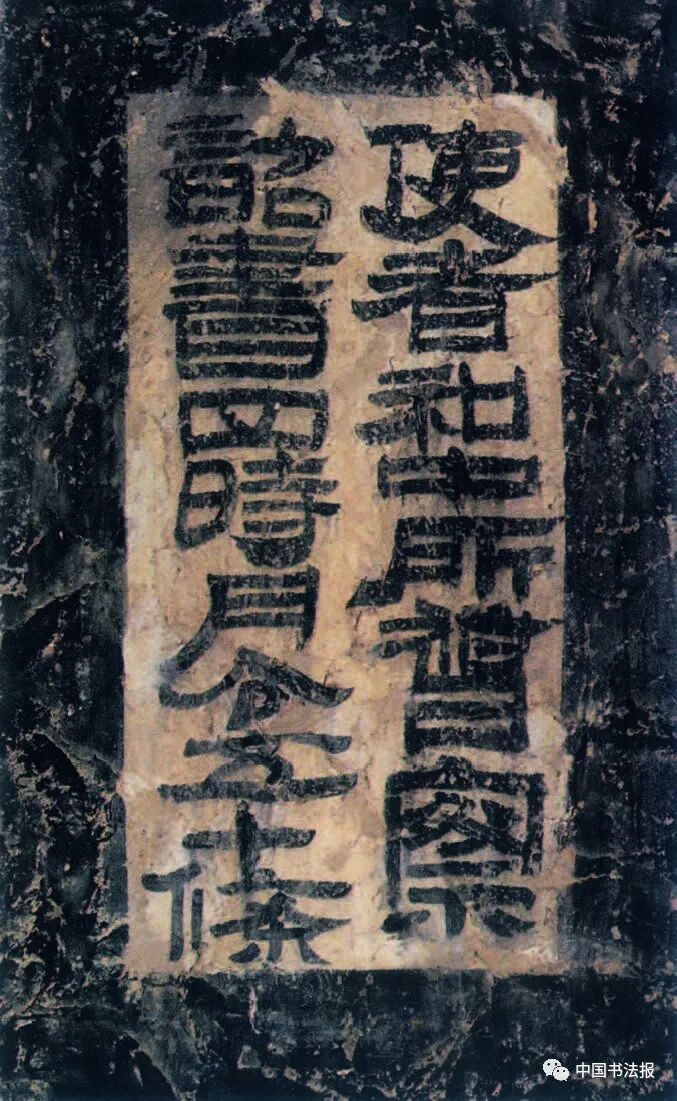 使者和中所督察
詔書四時月令五十條
中国书法报